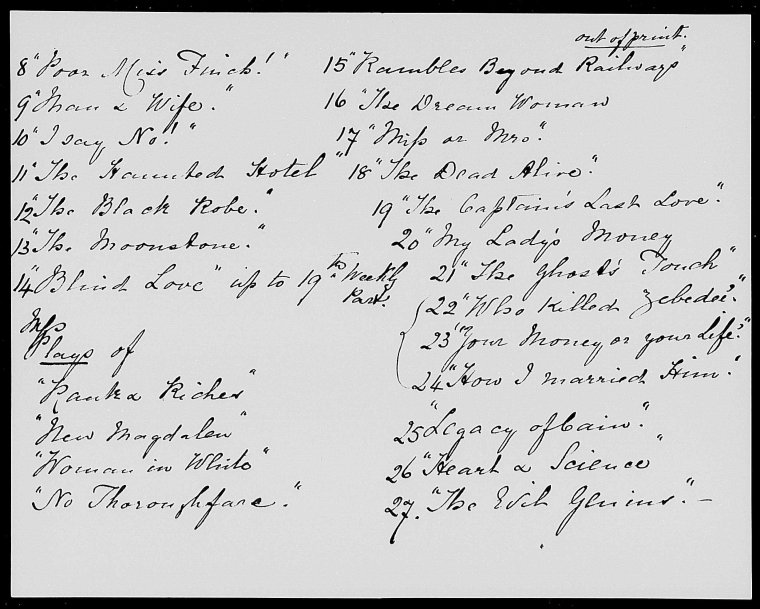 8 "Poor Miss Finch!"
9 "Man & Wife."
10 "I say No!"
11 "The Haunted Hotel"
12 "The Black Robe."
13 "The Moonstone."
14 "Blind Love" up to 19th Weekly
Part.
Mss
Plays of
"Rank & Riches"
"New Magdalen"
"Woman in White"
"No Thoroughfare."
out of print.
15 "Rambles Beyond Railways"
16 "The Dream Woman
17 "Miss or Mrs."
18 "The Dead Alive."
19 "The Captain's Last Love."
20 "My Lady's Money
21 "The Ghost's Touch"
22 "Who Killed Zebedee?"
23 "Your Money or your Life?"
24 "How I married Him."
25 "Legacy of Cain."
26 "Heart & Science"
27. "The Evil Genius." –